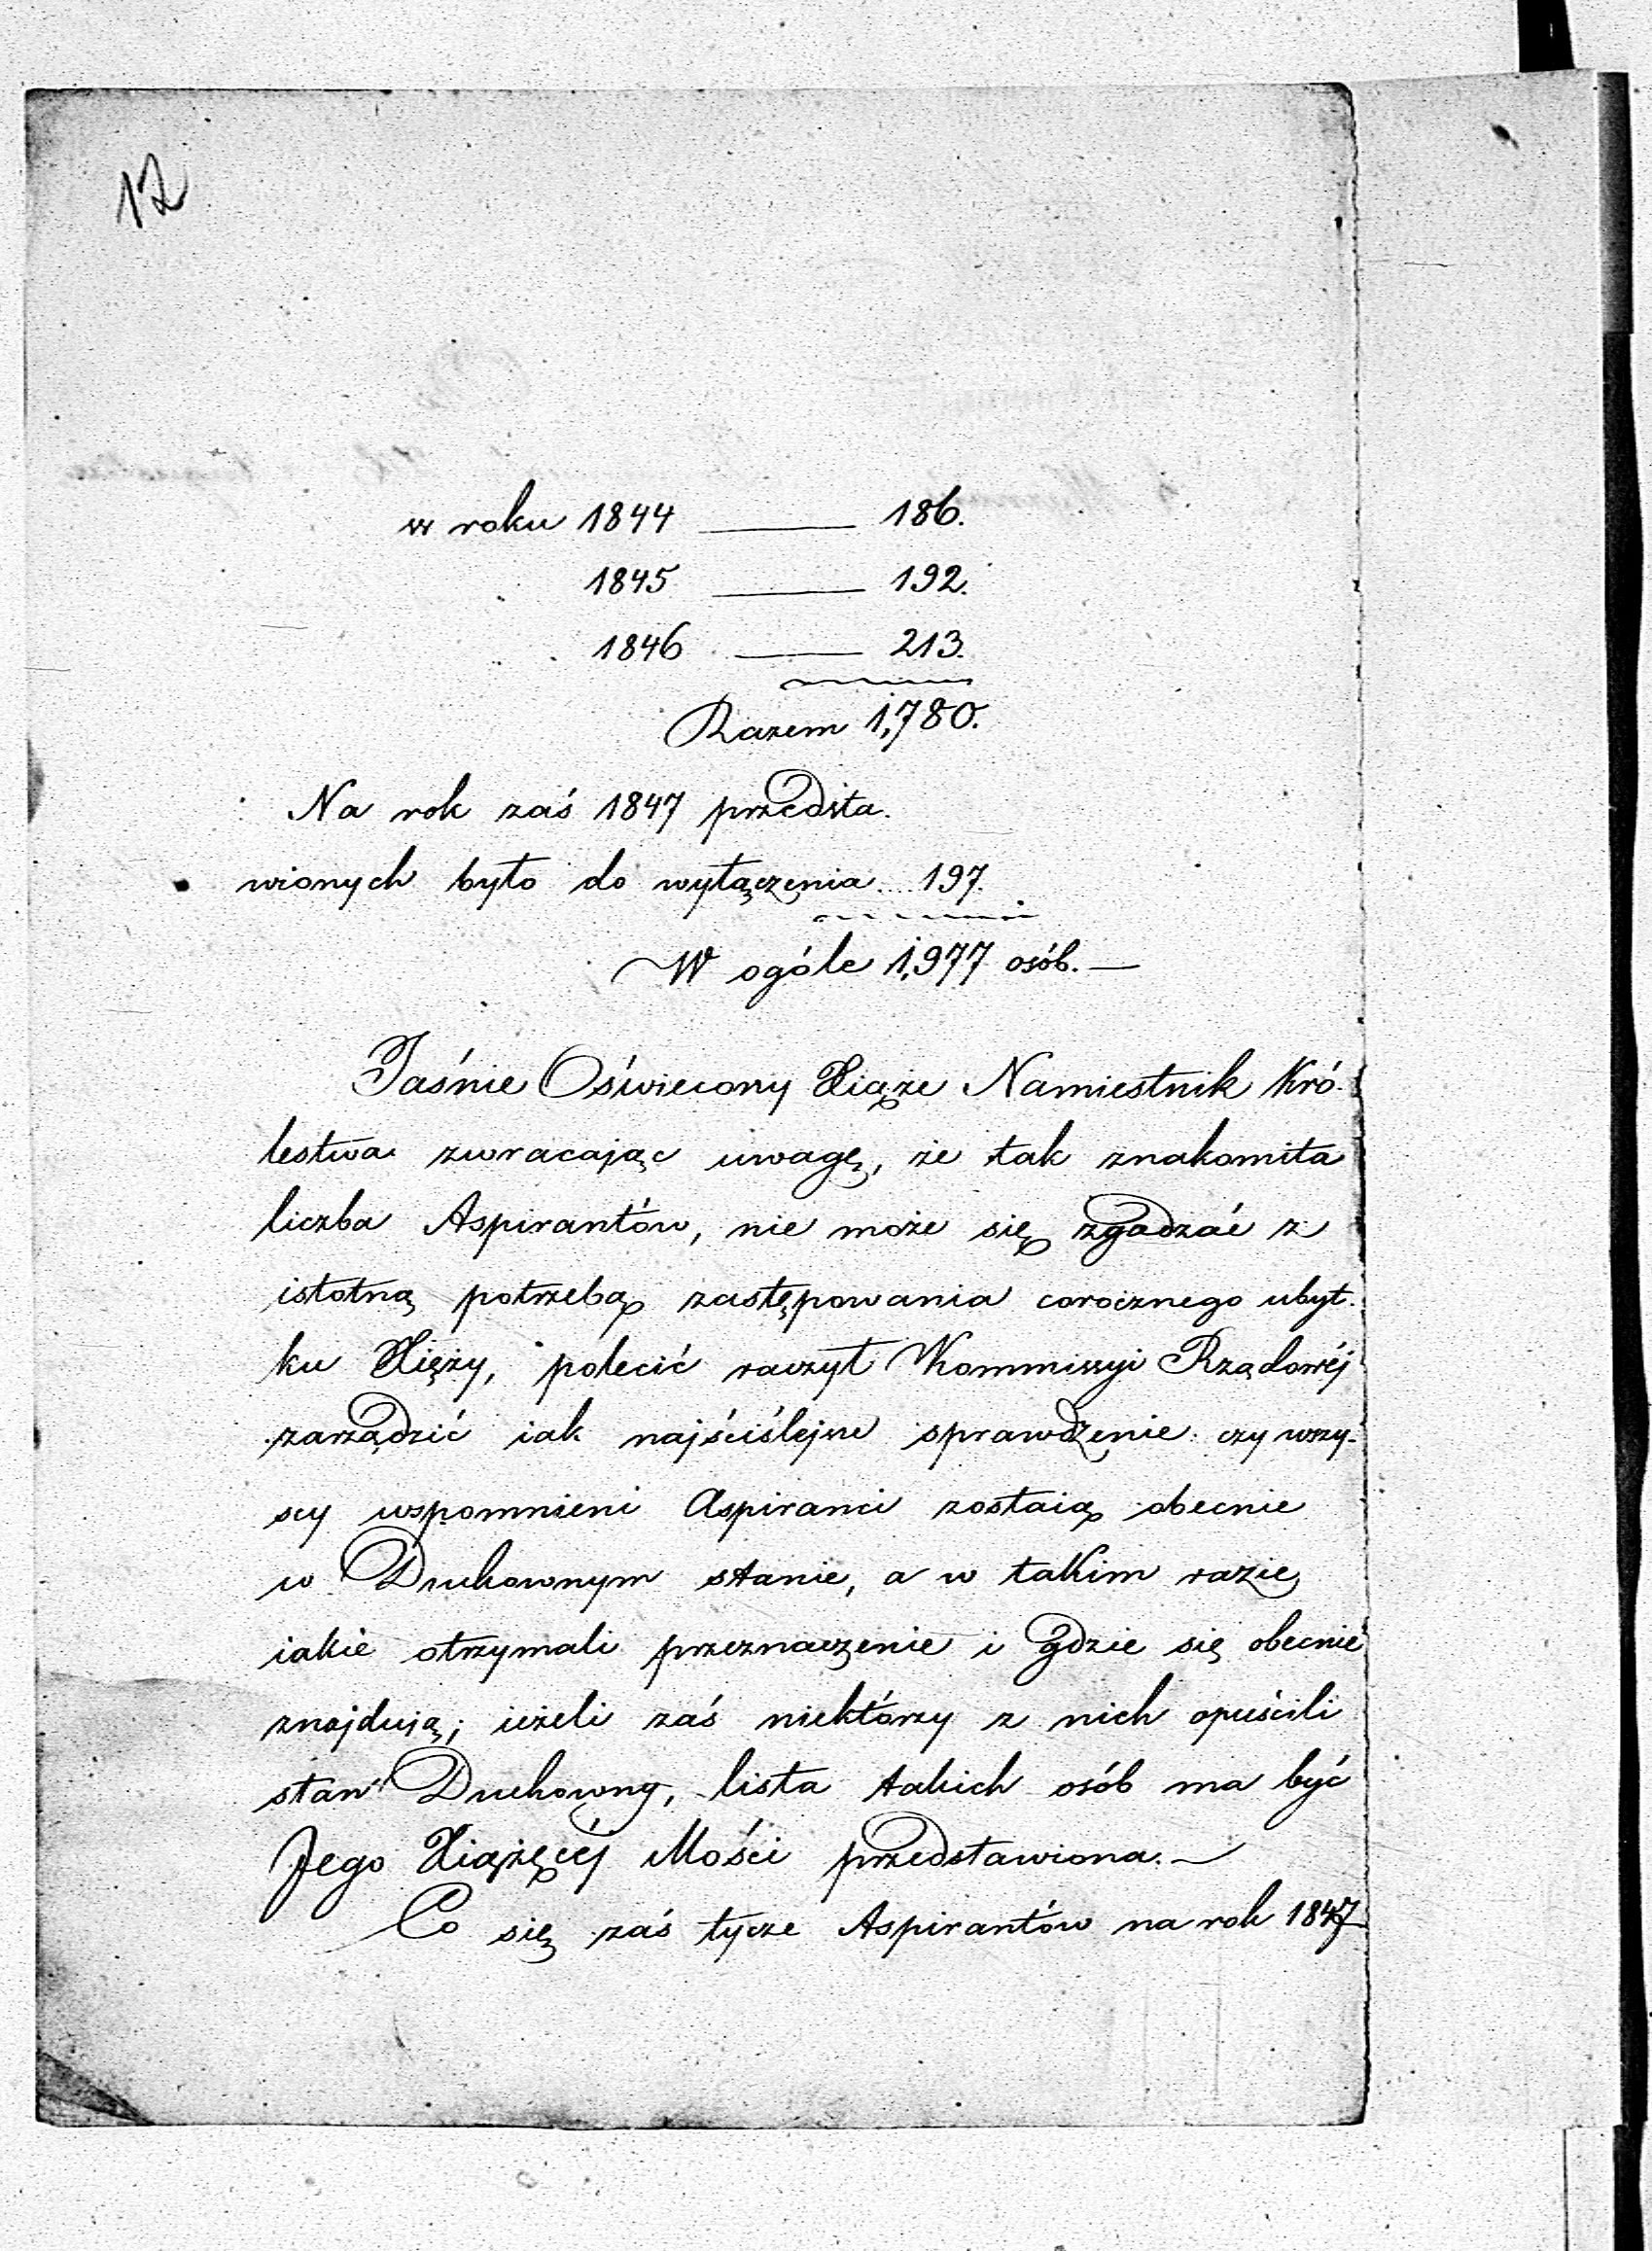 12
w roku 1844 ——— 186.
1845 ——— 192.
1846 ——— 213.
Razem 1,780.
Na rok zaś 1847 przedsta.
wionych było do wyłączenia.... 197.
W ogóle 1,977 osób. —
Jaśnie Oświecony Xiąże Namiestnik Kró-
lestwa zwracając uwagę, że tak znakomita
liczba Aspirantów, nie może się zgadzać z
istotną potrzebą zastępowania corocznego ubyt-
ku Xięży, polecić raczył Kommissyi Rządowéj
zarządzić iak najściślejsze sprawdzenie: czy wszy-
scy wspomnieni Aspiranci zostaią obecnie
w Duchownym stanie, a w takim razie
iakie otrzymali przeznaczenie i gdzie się obecnie
znajdują; ieżeli zaś niektórzy z nich opuścili
stan Duchowny, lista takich osób ma być
Jego Xiążęcéj Mości przedstawiona. —
Co się zaś tycze Aspirantów na rok 1847